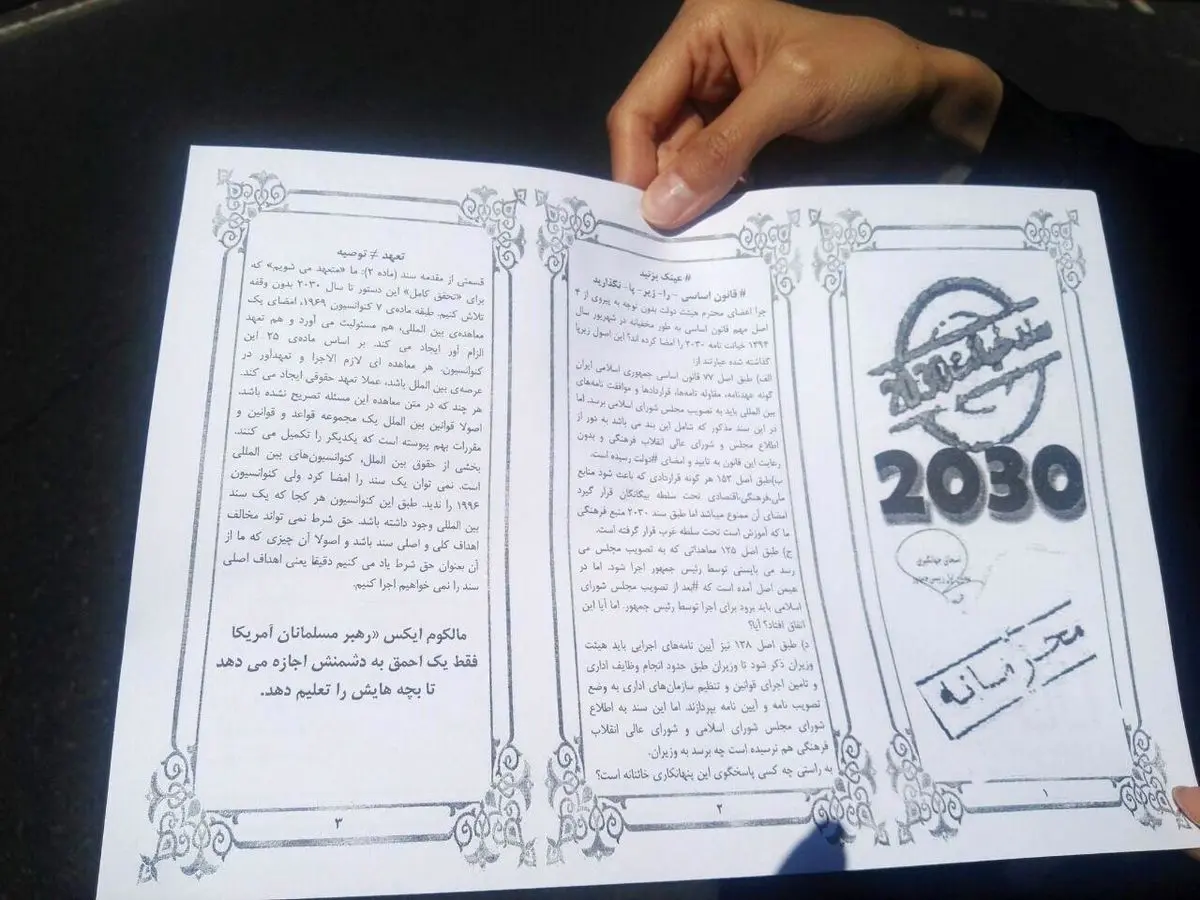 سند خیانت 2030
2030
اسحاق جهانگیری
محرمانه
۱
# عینک بزنید
# قانون اساسی - را- زیر- پا- نگذارید
چرا اعضای محترم هیئت دولت بدون توجه به پیروی از ۴
اصل مهم قانون اساسی به طور مخفیانه در شهریور سال
۱۳۹۴ خیانت نامه ۲۰۳۰ را امضا کرده اند؟ این اصول زیرپا
گذاشته شده عبارتند از:
الف) طبق اصل ۷۷ قانون اساسی جمهوری اسلامی ایران
گونه عهدنامه، مقاوله نامه‌ها، قراردادها و موافقت نامه‌های
بین المللی باید به تصویب مجلس شورای اسلامی برسد. اما
در این سند مذکور که شامل این بند می باشد به دور از
اطلاع مجلس و شورای عالی انقلاب فرهنگی و بدون
رعایت این قانون به تایید و امضای #دولت رسیده است.
ب)طبق اصل ۱۵۳ هر گونه قراردادی که باعث شود منابع
ملی،فرهنگی،اقتصادی تحت سلطه بیگانگان قرار گیرد
امضای آن ممنوع میباشد اما طبق سند ۲۰۳۰ منبع فرهنگی
ما که آموزش است تحت سلطه غرب قرار گرفته است.
ج) طبق اصل ۱۲۵ معاهداتی که به تصویب مجلس می
رسد می بایستی توسط رئیس جمهور اجرا شود. اما در
عیمن اصل آمده است که #بعد از تصویب مجلس شورای
اسلامی باید برود برای اجرا توسط رئیس جمهور. اما آیا این
اتفاق افتاد؟ آیا؟
د) طبق اصل ۱۳۸ نیز آیین نامه‌های اجرایی باید هیئت
وزیران ذکر شود تا وزیران طبق حدود انجام وظایف اداری
و تامین اجرای قوانین و تنظیم سازمان‌های اداری به وضع
تصویب نامه و آیین نامه بپردازند. اما این سند به اطلاع
شورای مجلس شورای اسلامی و شورای عالی انقلاب
فرهنگی هم نرسیده است چه برسد به وزیران.
به راستی چه کسی پاسخگوی این پنهانکاری خائنانه است؟
۲
تعهد ≠ توصیه
قسمتی از مقدمه سند (ماده ۲): ما «متعهد می شویم» که
برای «تحقق کامل» این دستور تا سال ۲۰۳۰ بدون وقفه
تلاش کنیم. طبقه ماده‌ی ۷ کنوانسیون ۱۹۶۹، امضای یک
معاهده‌ی بین المللی، هم مسئولیت می آورد و هم تعهد
الزام آور ایجاد می کند. بر اساس ماده‌ی ۲۵ این
کنوانسیون. هر معاهده ای لازم الاجرا و تعهدآور در
عرصه‌ی بین الملل باشد، عملا تعهد حقوقی ایجاد می کند.
هر چند که در متن معاهده این مسئله تصریح نشده باشد.
اصولا قوانین بین الملل یک مجموعه قواعد و قوانین و
مقررات بهم پیوسته است که یکدیگر را تکمیل می کنند.
بخشی از حقوق بین الملل، کنوانسیون‌های بین المللی
است. نمی توان یک سند را امضا کرد ولی کنوانسیون
۱۹۹۶ را ندید. طبق این کنوانسیون هر کجا که یک سند
بین المللی وجود داشته باشد. حق شرط نمی تواند مخالف
اهداف کلی و اصلی سند باشد و اصولا آن چیزی که ما از
آن بعنوان حق شرط یاد می کنیم دقیقا یعنی اهداف اصلی
سند را نمی خواهیم اجرا کنیم.
مالکوم ایکس «رهبر مسلمانان آمریکا
فقط یک احمق به دشمنش اجازه می دهد
تا بچه هایش را تعلیم دهد.
۳